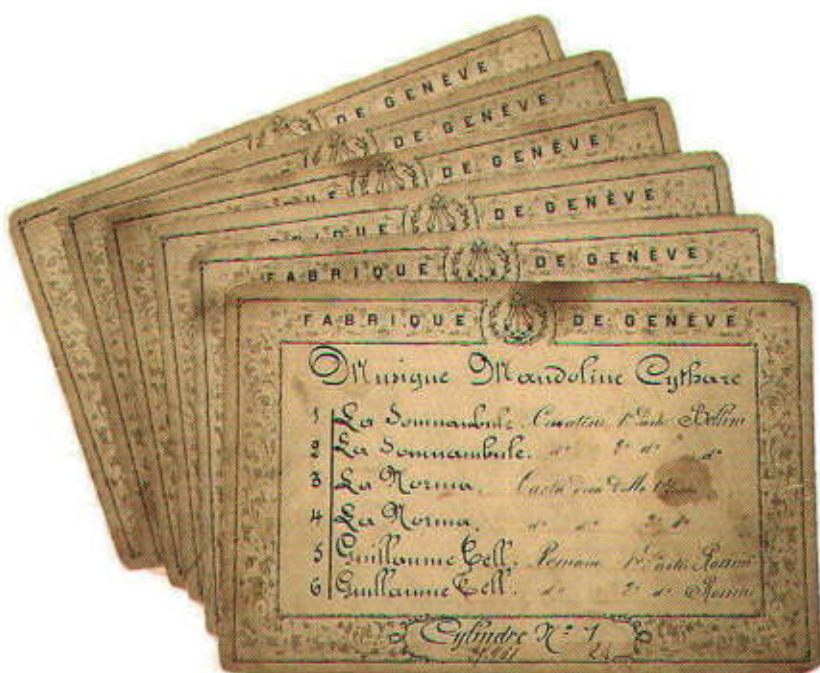 DE GENÈVE
DE GENÈVE
DE GENÈVE
DE GENÈVE
FABRIQUE DE GENÈVE
FABRIQUE DE GENÈVE
Musique Mandoline Cythare
1 La Somnambule. Cavatine 1re partie Bellini
2 La Somnambule. do 2e do do
3 La Norma. Casta diva
4 La Norma. do do 2e do
5 Guillaume Tell. Romance 1re partie Rossini
6 Guillaume Tell. do 2e do Rossini
Cylindre No 1